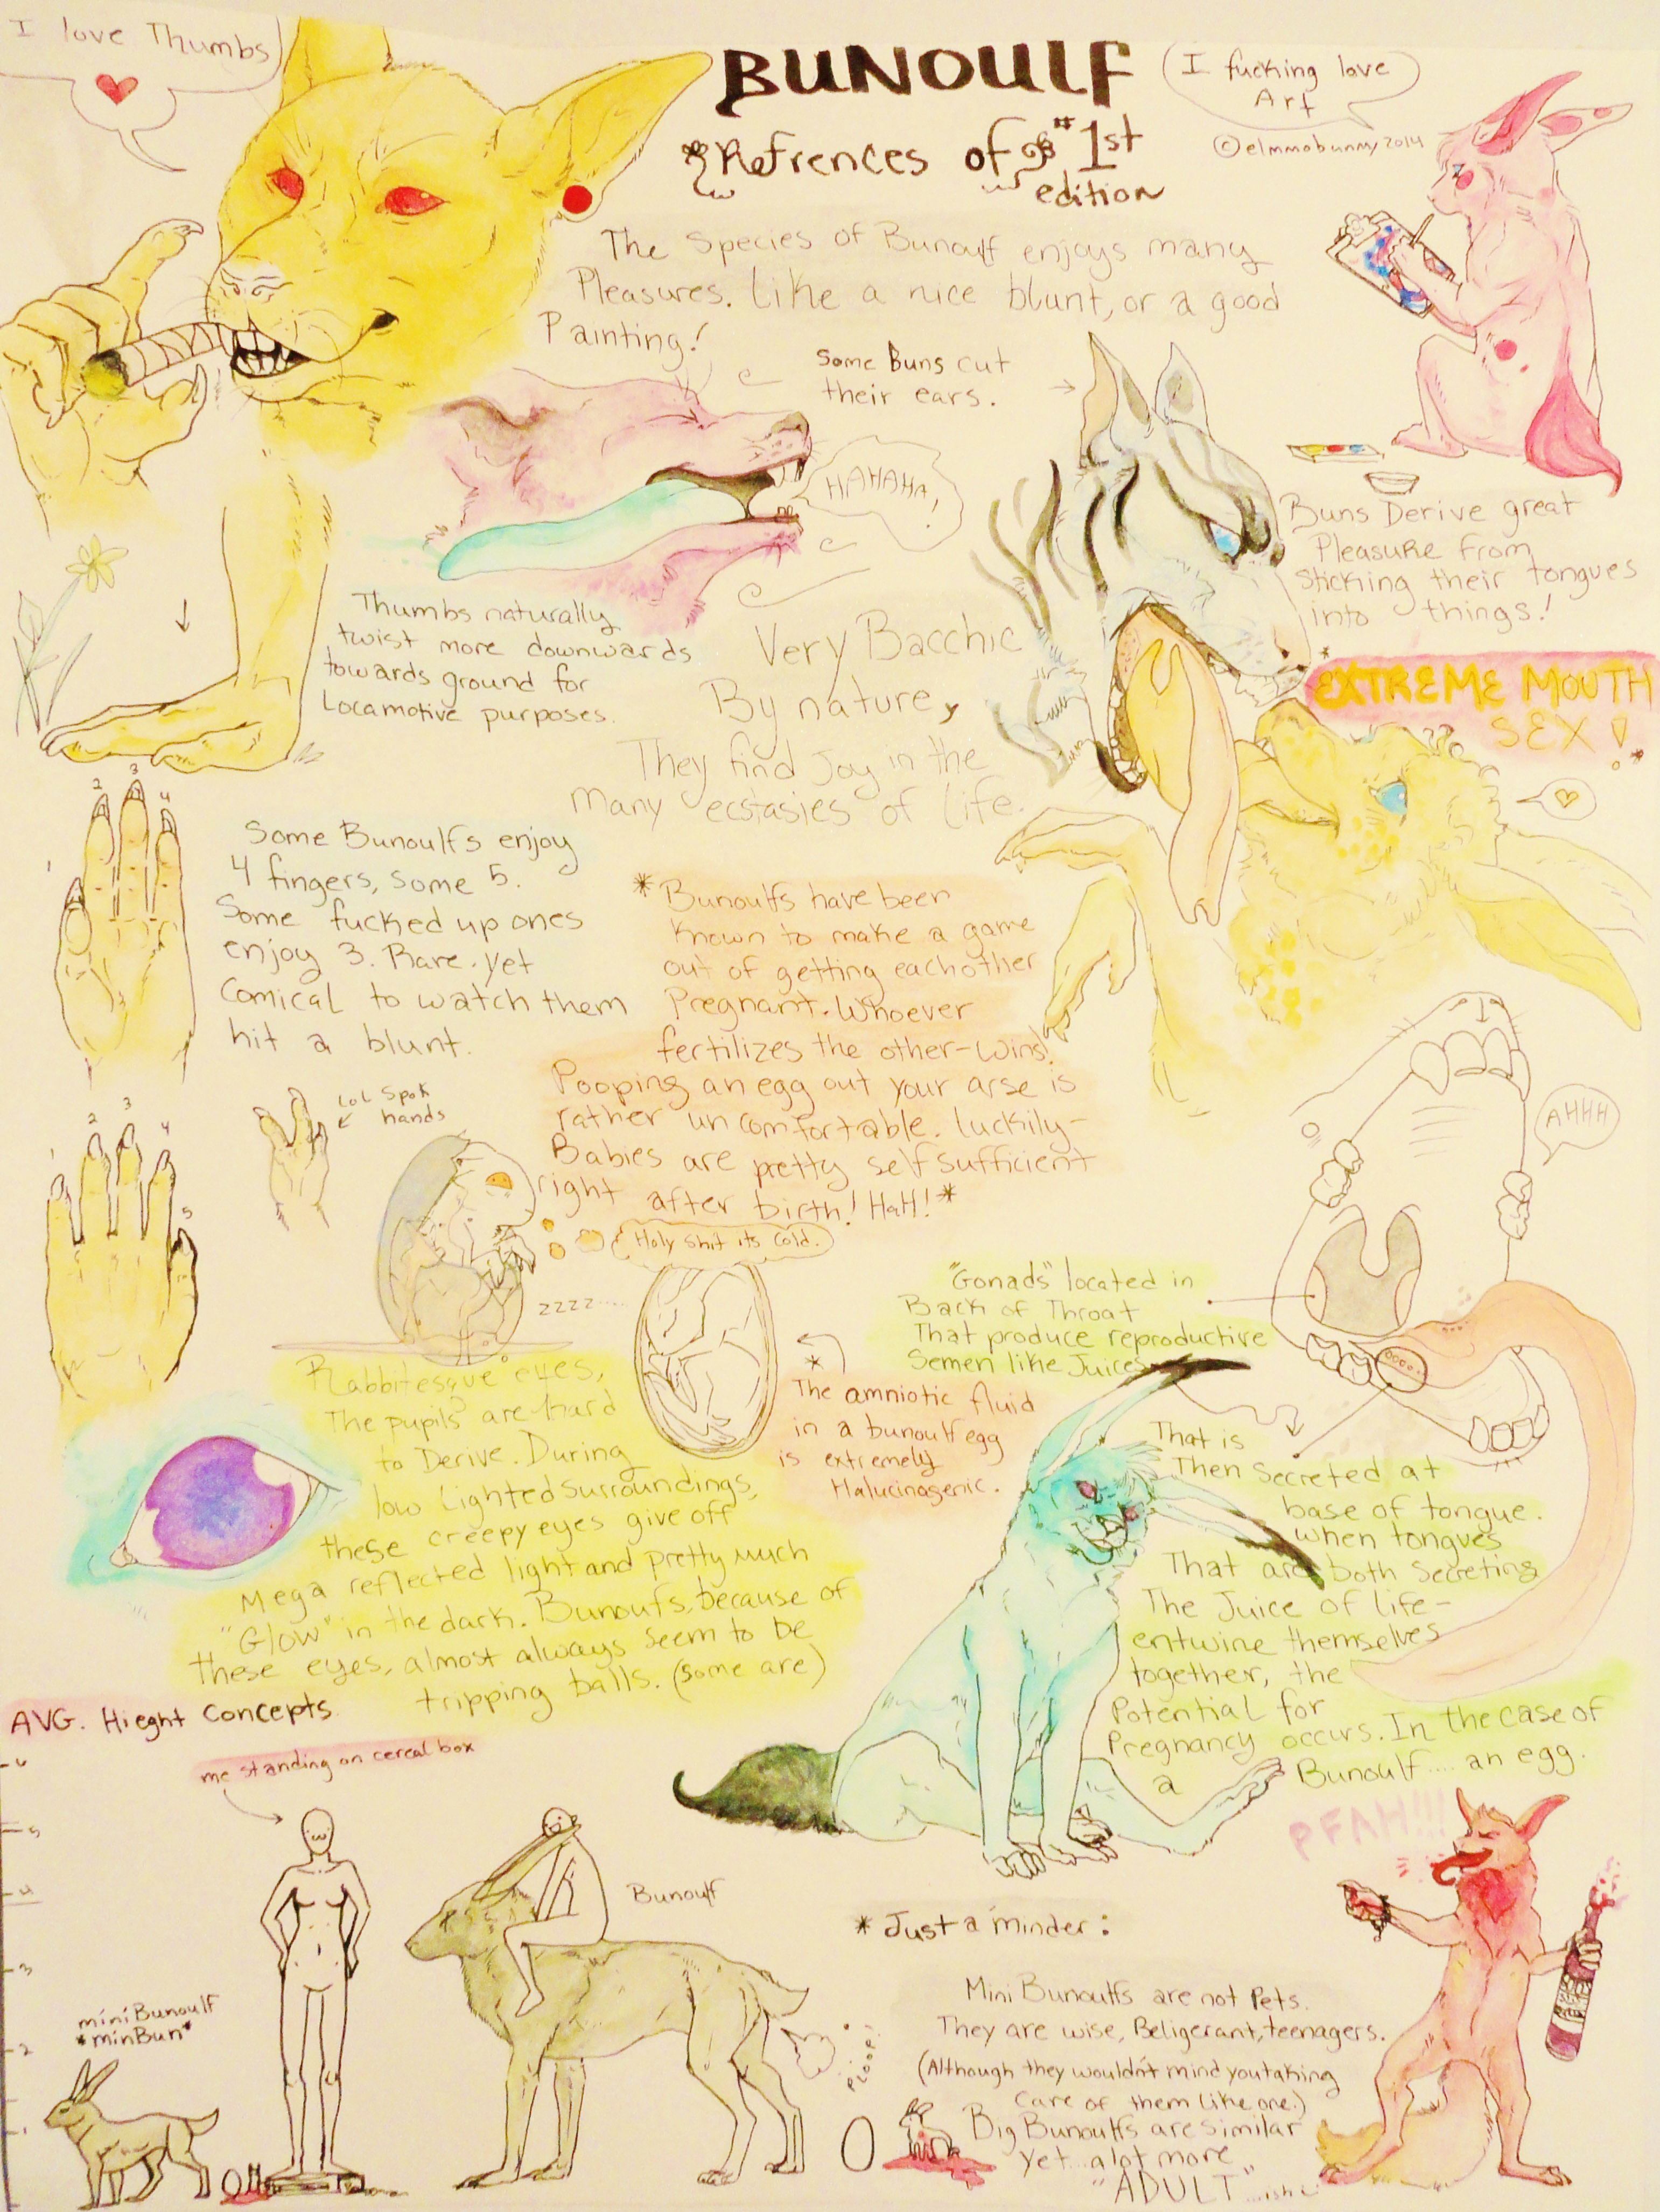 I love Thumbs
BUNOULF
Refrences of #1st
edition
I fucking love
Art
©elmmobunny2014
The Species of Bunoulf enjoys many
Pleasures. Like a nice blunt, or a good
Painting!
Some Buns cut
their ears.
HAHAHA!
Buns Derive great
Pleasure from
Sticking their tongues
into things!
*EXTREME MOUTH
SEX!*
Thumbs naturally
twist more downwards
towards ground for
Locamotive purposes.
Very Bacchic
By nature,
They find Joy in the
Many ecstasies of life.
1 2 3 4
Some Bunoulfs enjoy
4 fingers, some 5.
Some fucked up ones
enjoy 3. Rare. yet
Comical to watch them
hit a blunt.
LOL Spok
hands
1 2 3 4 5
*Bunoulfs have been
Known to make a game
out of getting eachother
Pregnant. Whoever
fertilizes the other-wins!
Pooping an egg out your arse is
rather uncomfortable. luckily-
Babies are pretty selfsufficient
right after birth! HaH!*
Holy shit its cold.
zzzz....
AHHH
"Gonads" located in
Back of Throat
That produce reproductive
Semen like Juices
*
The amniotic fluid
in a bunoulf egg
is extremely
Halucinagenic.
That is
Then Secreted at
base of tongue.
when tongues
That are both Secreting
The Juice of life-
entwine themselves
together, the
Potential for
Pregnancy occurs. In the case of
a Bunoulf.... an egg.
Rabbitesque eyes,
The pupils are hard
to Derive. During
low Lighted Surroundings,
these creepy eyes give off
Mega reflected light and pretty much
"Glow" in the dark. Bunoufs, because of
these eyes, almost always seem to be
tripping balls. (some are)
AVG. Hieght Concepts.
me standing on cereal box
5
4
3
2
1
mini Bunoulf
*minBun*
Bunoulf
PLOOP!
PFAH!!!
* Just a minder:
Mini Bunoulfs are not Pets.
They are wise, Beligerant, teenagers.
(Although they wouldn't mind you taking
care of them like one.)
Big Bunoulfs are similar
yet...a lot more
"ADULT"...ish